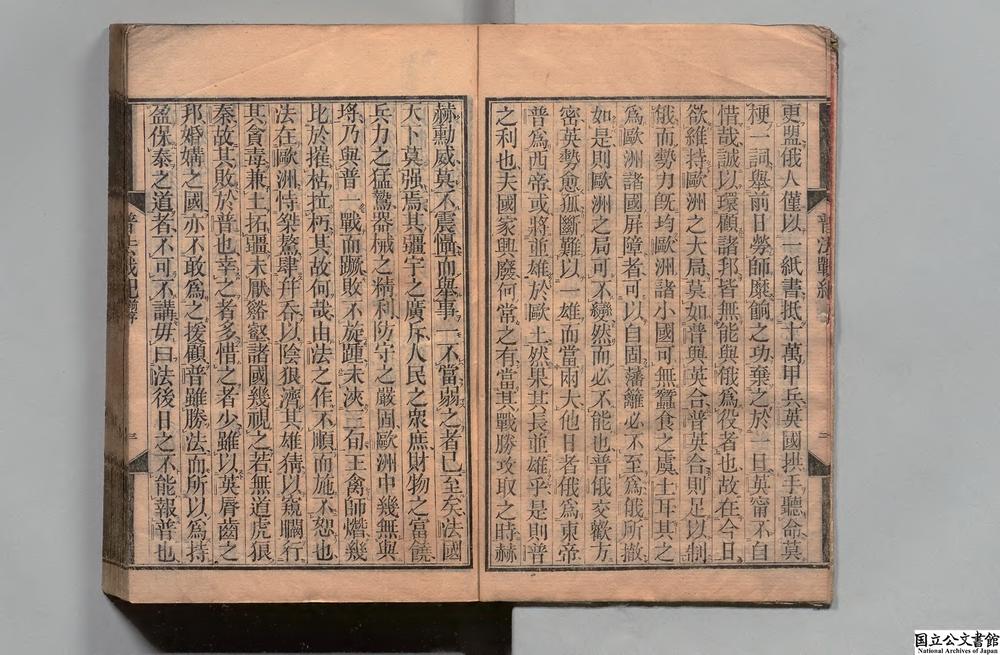 更盟俄人僅以一紙書抵十萬甲兵英國拱手聽命莫
梗一詞舉前日勞師糜餉之功棄之於一旦英甯不自
惜哉誠以環顧諸邦皆無能與俄爲役者也故在今日
欲維持歐洲之大局莫如普與英合普英合則足以制
俄而勢力旣均歐洲諸小國可無蠶食之虞土耳其之
爲歐洲諸國屏障者可以自固藩籬必不至爲俄所撤
如是則歐洲之局可不變然而必不能也普俄交歡方
密英勢愈孤斷難以一雄而當兩大他日者俄爲東帝
普爲西帝或將並雄於歐土然果其長並雄乎是則普
之利也夫國家興廢何常之有當其戰勝攻取之時赫
普法戰紀
三
赫勳威莫不震懾而舉事一不當弱之者已至矣法國
天下莫强焉其疆宇之廣斥人民之衆庶財物之富饒
兵力之猛鷙器械之精利防守之嚴固歐洲中幾無與
埓乃與普一戰而蹶敗不旋踵未浹三旬王禽師熸幾
比於摧枯拉朽其故何哉由法之作不順而施不恕也
法在歐洲恃桀驁肆幷吞以陰狠濟其雄猜以窺矙行
其貪毒兼土拓疆未厭谿壑諸國幾視之若無道虎狼
秦故其敗於普也幸之者多惜之者少雖以英脣齒之
邦婚媾之國亦不敢爲之援顧普雖勝法而所以爲持
盈保泰之道者不可不講毋曰法後日之不能報普也
普法戰紀
三
国立公文書館
National Archives of Japan